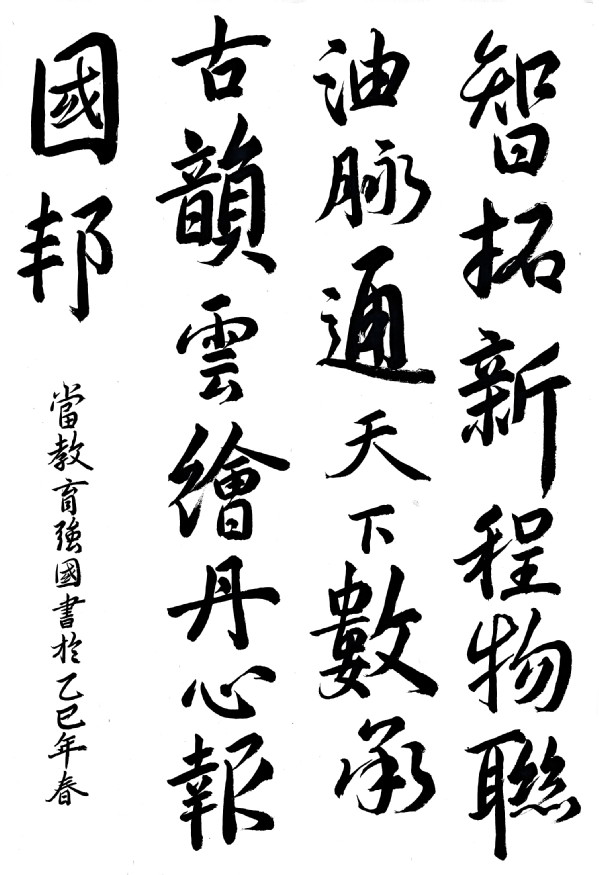 智拓新程物聯
油脉通天下數承
古韻雲繪丹心報
國邦
當教育強國書於乙巳年春